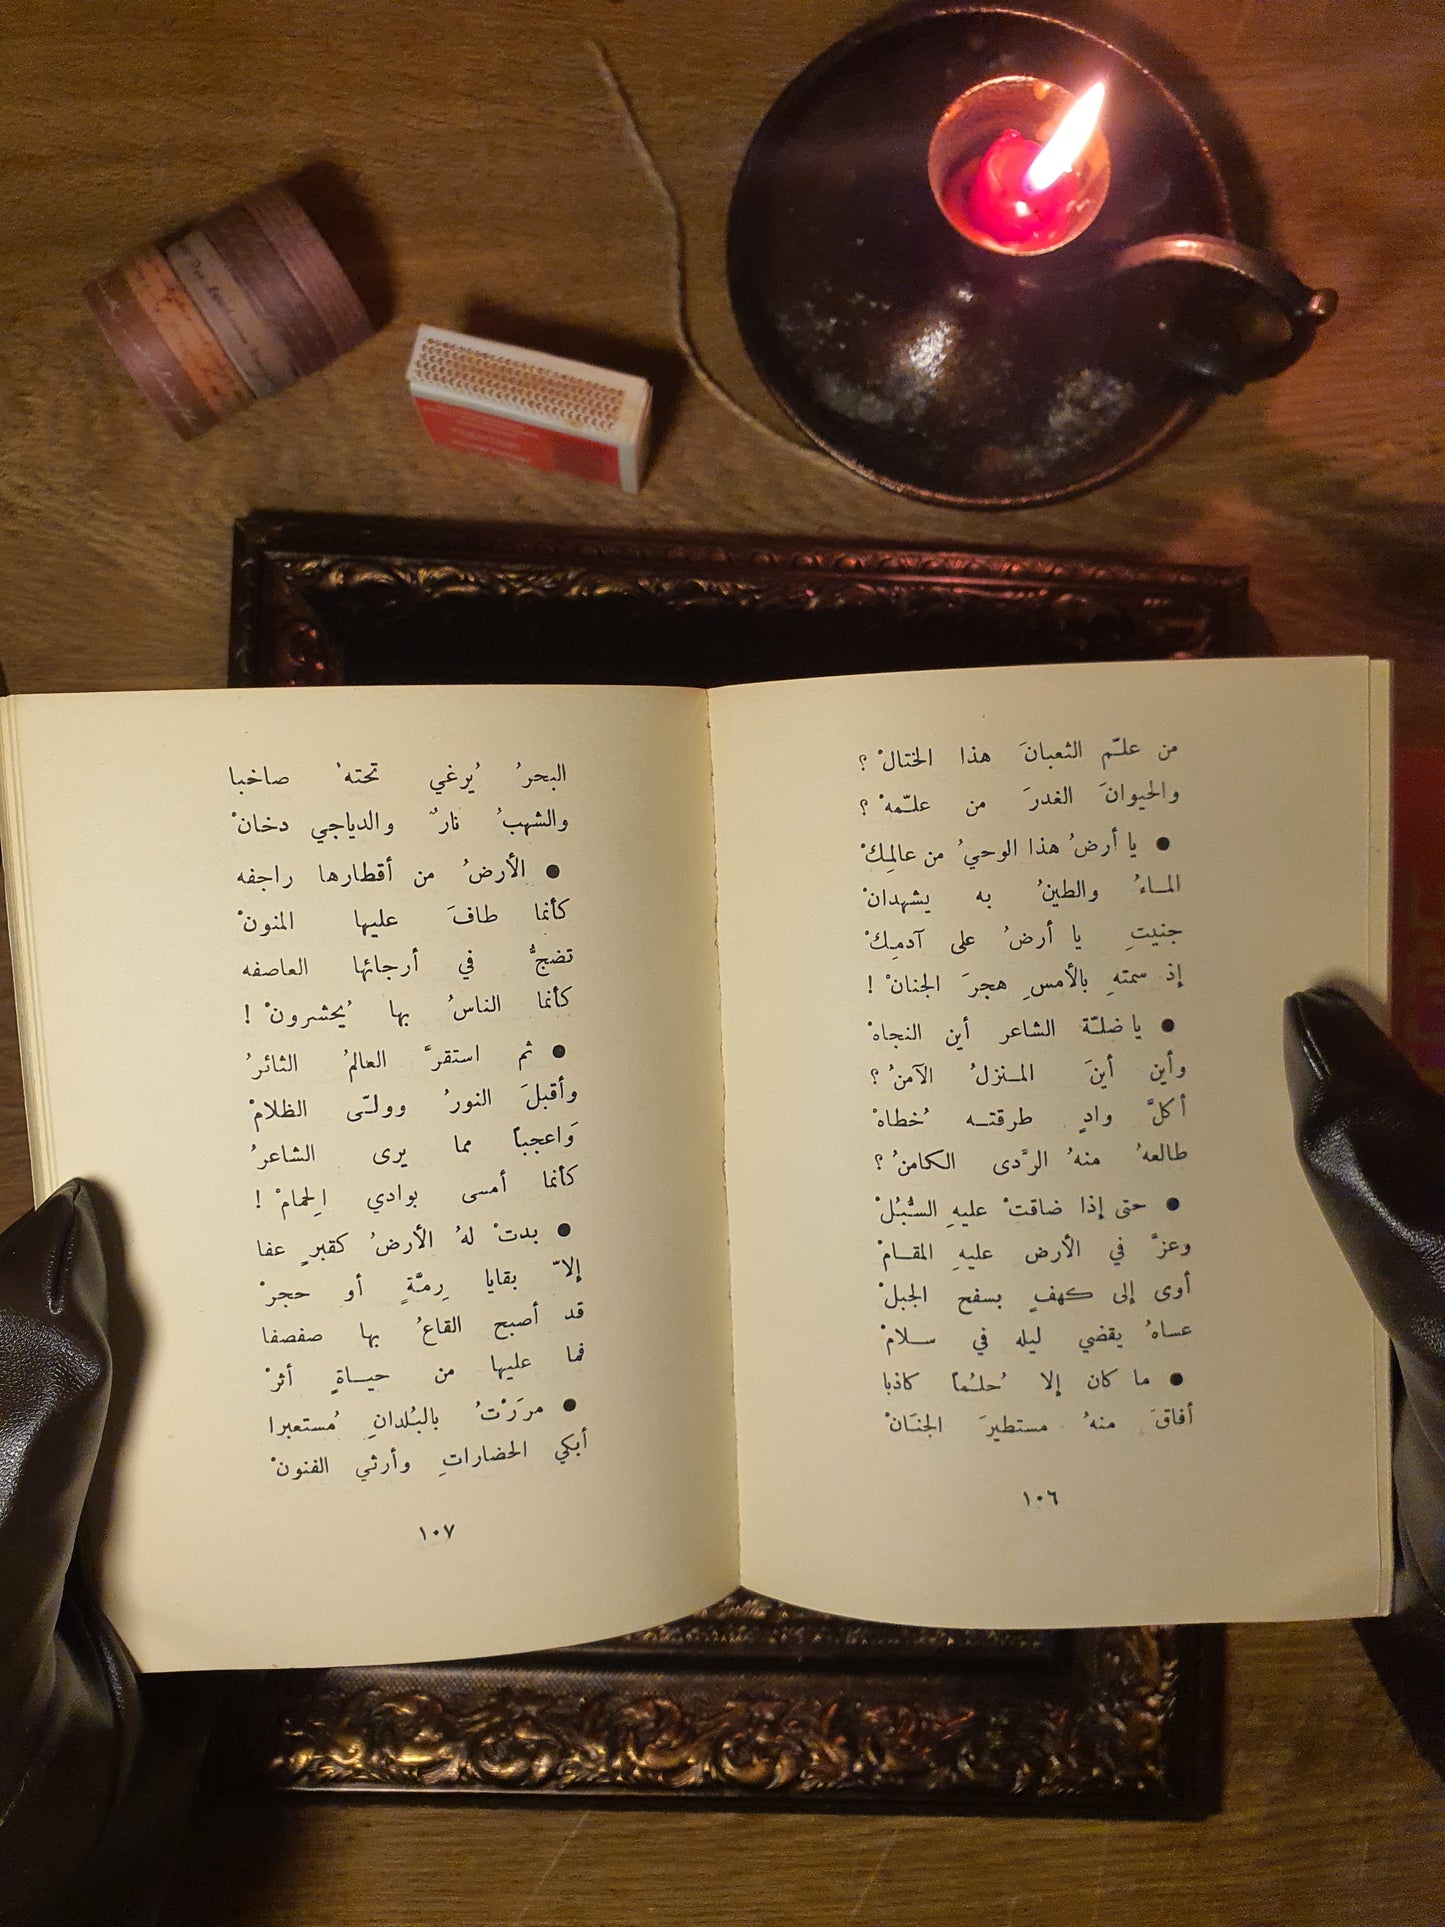 من علّم الثعبانَ هذا الختالْ ؟
والحيوانَ الغدرَ من علّمهْ ؟
● يا أرضُ هذا الوحيُ من عالمِكْ
المـاءُ والطينُ به يشهدانْ
جنيتِ يا أرضُ على آدمِكْ
إذ سمتهِ بالأمسِ هجرَ الجنانْ !
● يا ضلّة الشاعر أين النجاهْ
وأين أينَ المـنزلُ الآمنُ ؟
أكلَّ وادٍ طرقتـه خُطاهْ
طالعهُ منهُ الرَّدى الكامنُ ؟
● حتى إذا ضاقتْ عليهِ السُّبُلْ
وعزَّ في الأرض عليهِ المقـامْ
أوى إلى كهفٍ بسفح الجبلْ
عساهُ يقضي ليله في سـلامْ
● ما كان إلا حُلُماً كاذبا
أفاقَ منهُ مستطيرَ الجنَانْ
١٠٦
البحرُ يُرغي تحتهُ صاخبا
والشهبُ نارٌ والدياجي دخانْ
● الأرضُ من أقطارها راجفه
كأنما طافَ عليها المنونْ
تضجُّ في أرجائها العاصفه
كأنما الناسُ بها يُحشرونْ !
● ثم استقرَّ العالمُ الثائرُ
وأقبلَ النورُ وولّى الظلامْ
وَاعجباً مما يرى الشاعرُ
كأنما أمسى بوادي الِحمامْ !
● بدتْ لهُ الأرضُ كقبرٍ عفا
إلاّ بقايا رِمَّةٍ أو حجرْ
قد أصبح القاعُ بها صفصفا
فما عليها من حيـاةٍ أثرْ
● مررَرْتُ بالبُلدانِ مُستعبرا
أبكي الحضاراتِ وأرثي الفنونْ
١٠٧